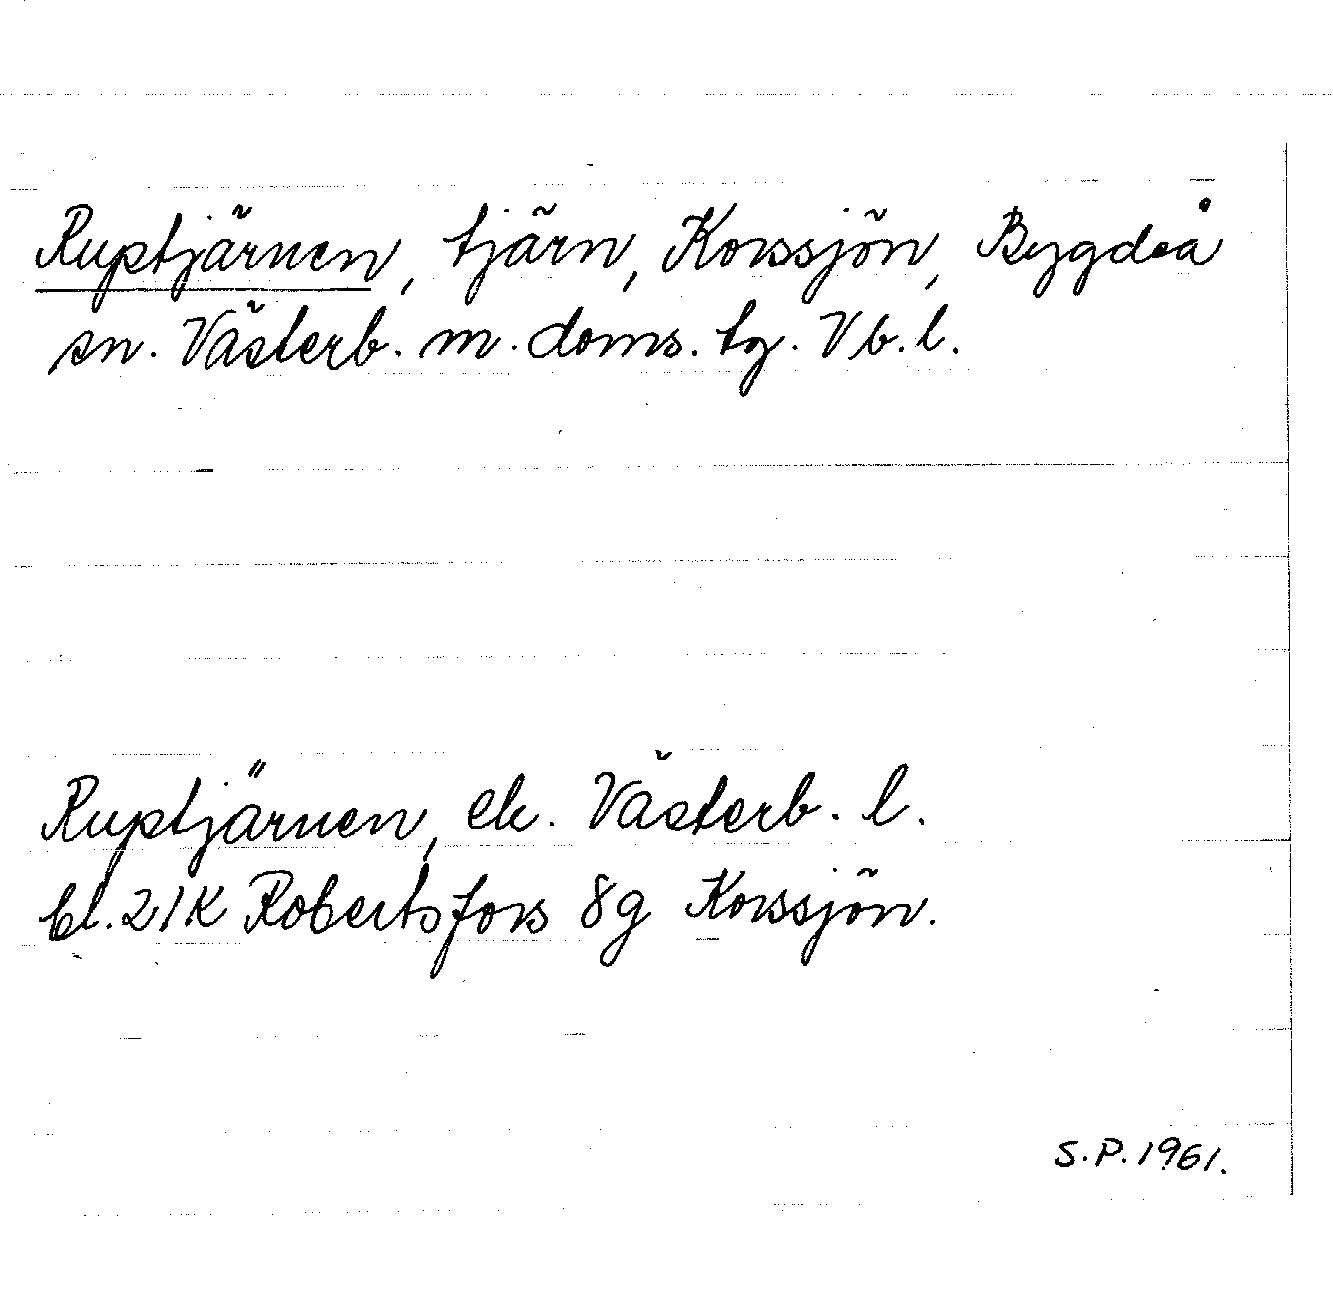 Ruptjärnen, tjärn, Korssjön, Bygdeå
sn. Västerb. m. doms. tg. Vb. l.
Ruptjärnen, ek. Västerb. l.
bl. 21K Robertsfors 8g Korssjön.
S.P. 1961.